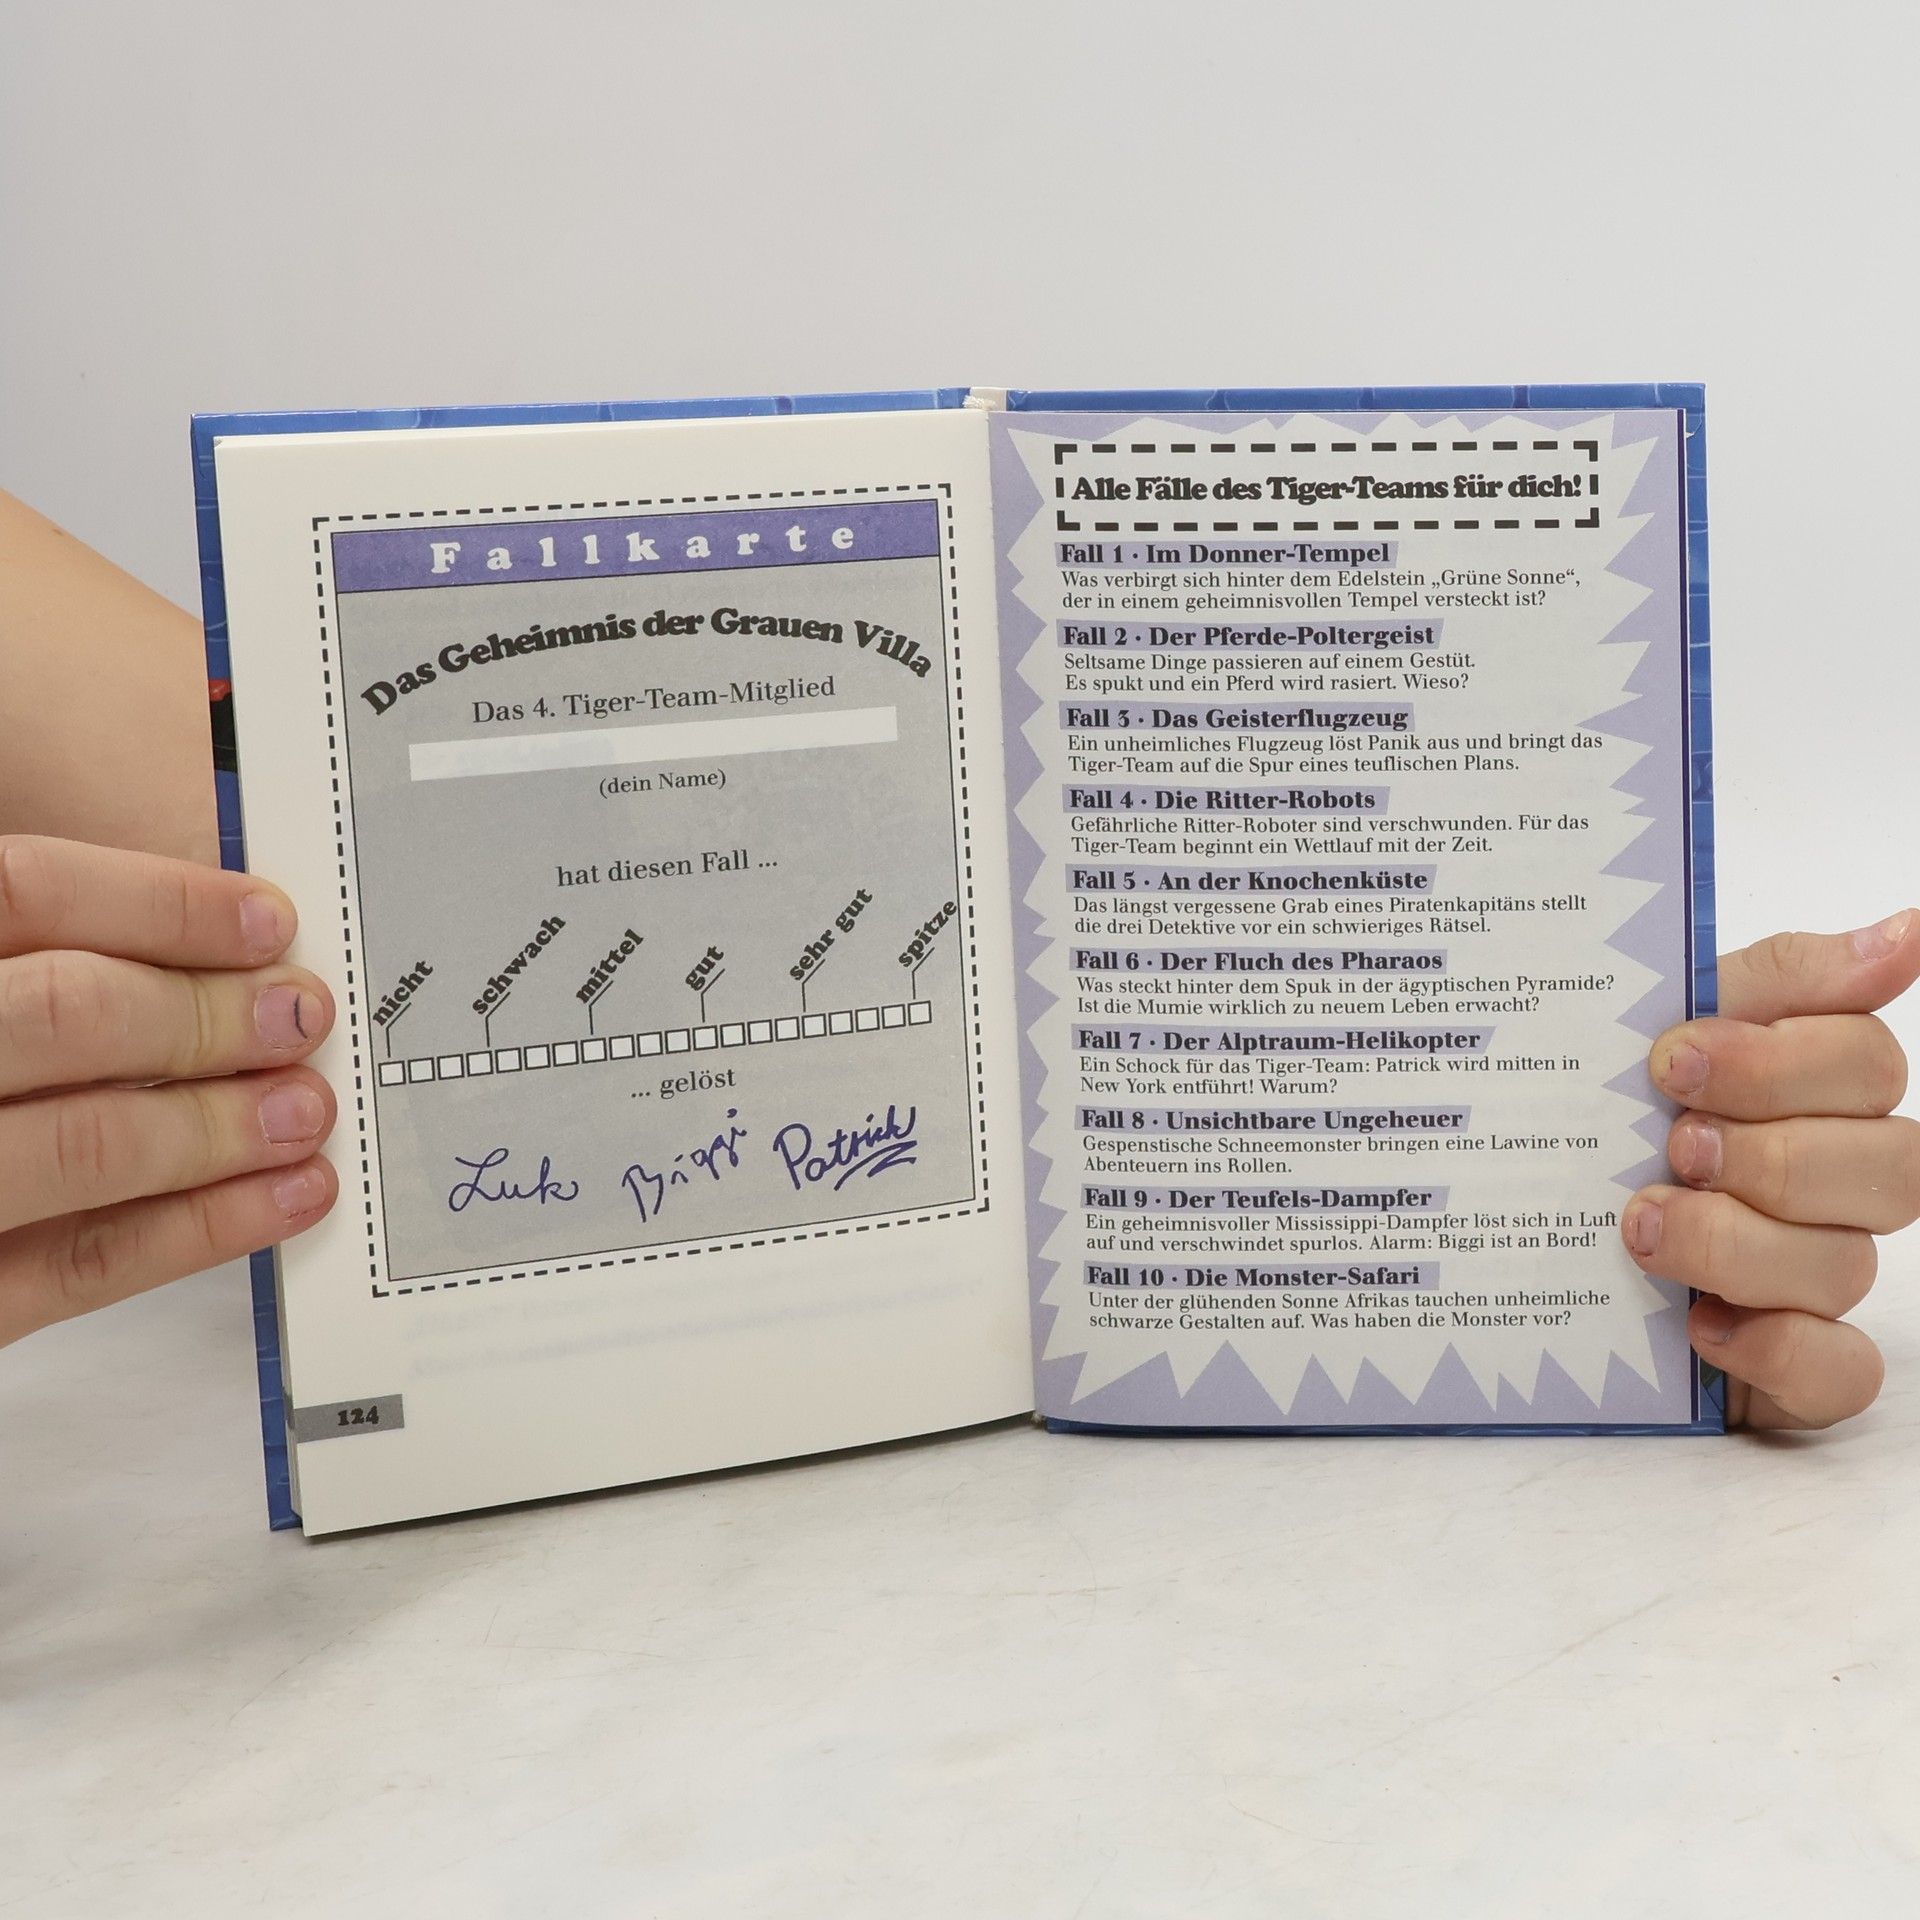 Fallkarte
Das Geheimnis der Grauen Villa
Das 4. Tiger-Team-Mitglied
(dein Name)
hat diesen Fall ...
nicht
schwach
mittel
gut
sehr gut
spitze
... gelöst
Luk Biggi Patrick
124
Alle Fälle des Tiger-Teams für dich!
Fall 1 · Im Donner-Tempel
Was verbirgt sich hinter dem Edelstein „Grüne Sonne“,
der in einem geheimnisvollen Tempel versteckt ist?
Fall 2 · Der Pferde-Poltergeist
Seltsame Dinge passieren auf einem Gestüt.
Es spukt und ein Pferd wird rasiert. Wieso?
Fall 3 · Das Geisterflugzeug
Ein unheimliches Flugzeug löst Panik aus und bringt das
Tiger-Team auf die Spur eines teuflischen Plans.
Fall 4 · Die Ritter-Robots
Gefährliche Ritter-Roboter sind verschwunden. Für das
Tiger-Team beginnt ein Wettlauf mit der Zeit.
Fall 5 · An der Knochenküste
Das längst vergessene Grab eines Piratenkapitäns stellt
die drei Detektive vor ein schwieriges Rätsel.
Fall 6 · Der Fluch des Pharaos
Was steckt hinter dem Spuk in der ägyptischen Pyramide?
Ist die Mumie wirklich zu neuem Leben erwacht?
Fall 7 · Der Alptraum-Helikopter
Ein Schock für das Tiger-Team: Patrick wird mitten in
New York entführt! Warum?
Fall 8 · Unsichtbare Ungeheuer
Gespenstische Schneemonster bringen eine Lawine von
Abenteuern ins Rollen.
Fall 9 · Der Teufels-Dampfer
Ein geheimnisvoller Mississippi-Dampfer löst sich in Luft
auf und verschwindet spurlos. Alarm: Biggi ist an Bord!
Fall 10 · Die Monster-Safari
Unter der glühenden Sonne Afrikas tauchen unheimliche
schwarze Gestalten auf. Was haben die Monster vor?